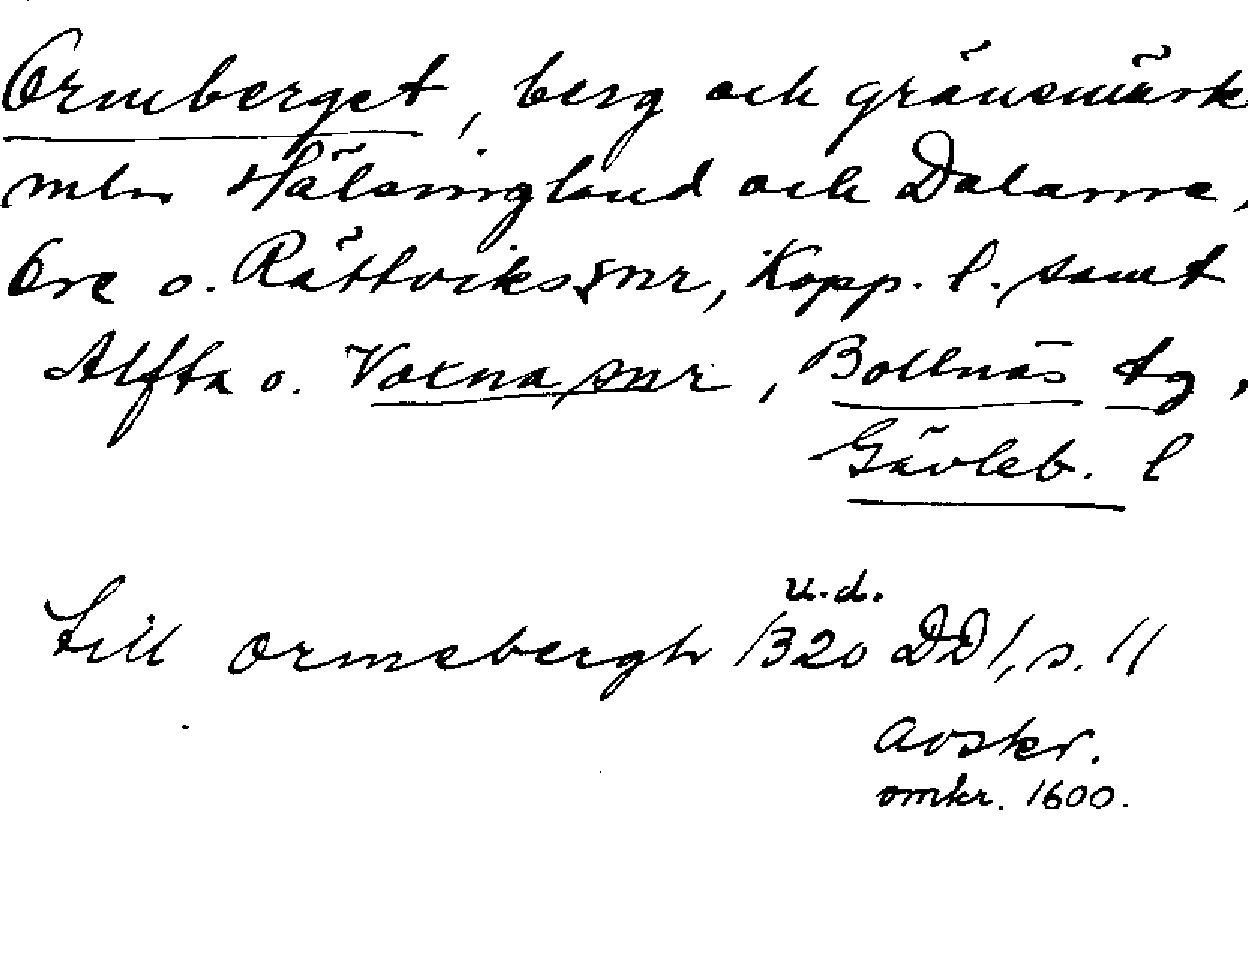 Ormberget, berg och gränsmärke
mln Hälsingland och Dalarne,
Ore o. Rättviks snr, Kopp. l. samt
Alfta o. Voxna snr, Bollnäs tg,
Gävleb. l
u.d.
till ormebergh 1320 DD 1, s. 11
avskr.
omkr. 1600.